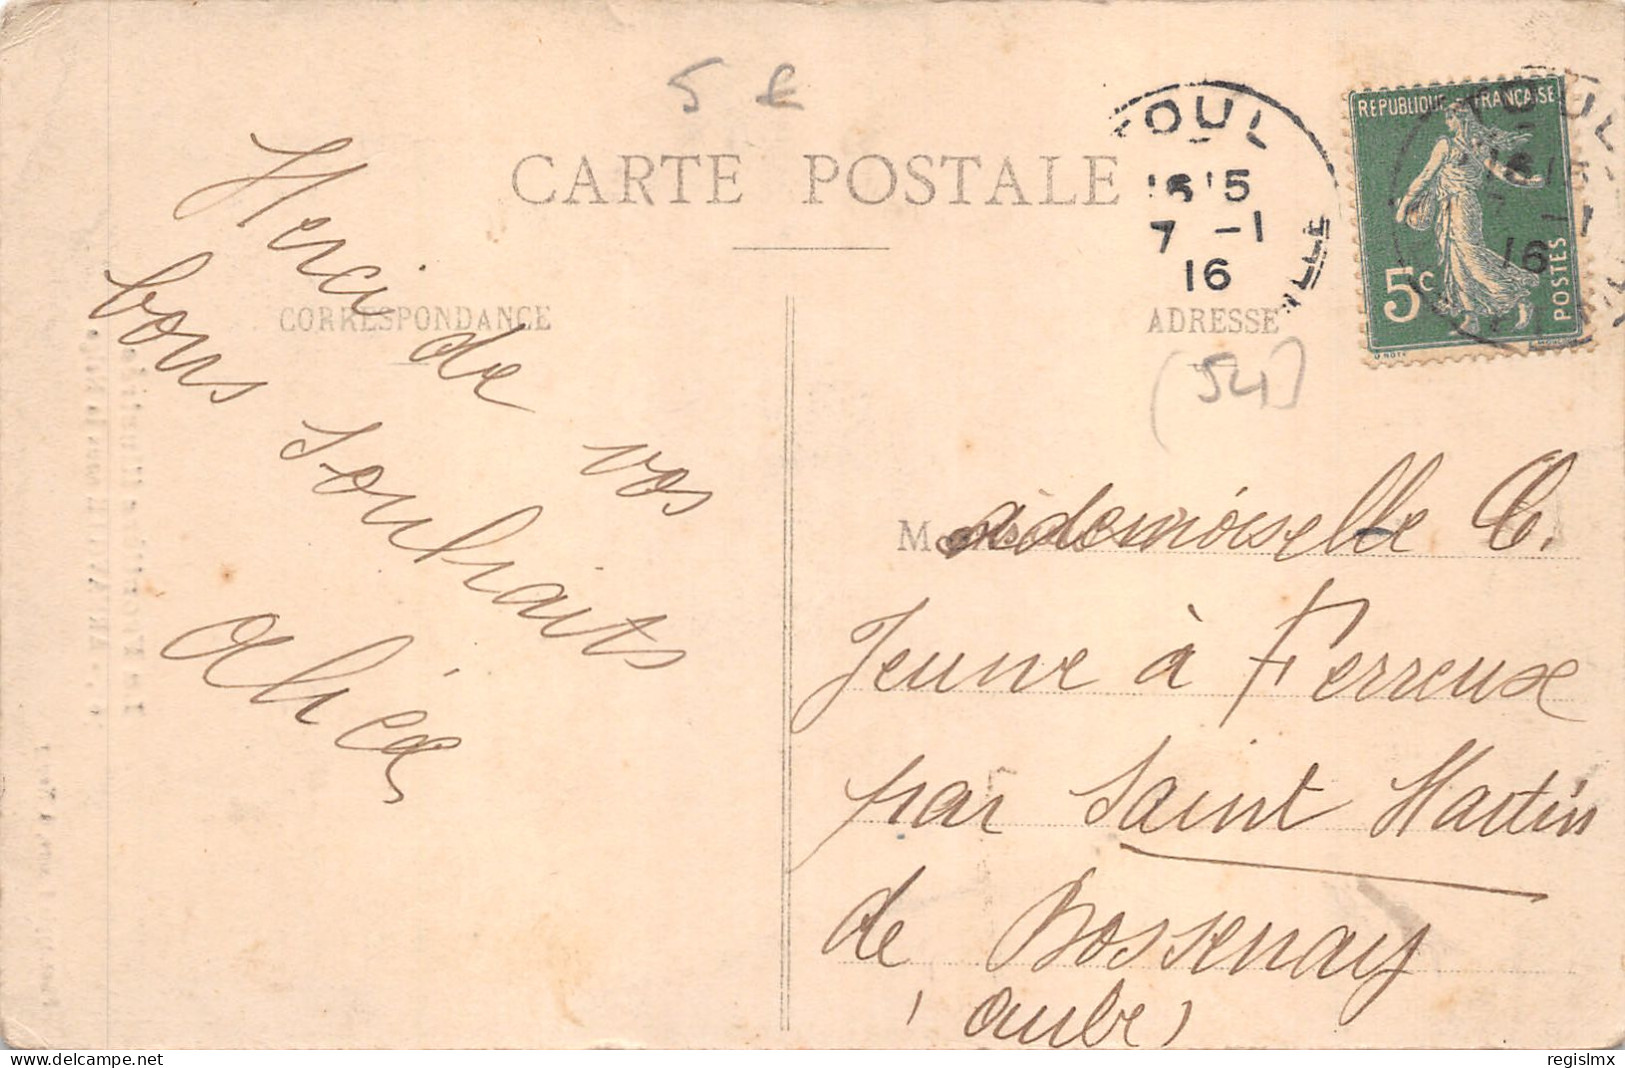 5 €
CARTE POSTALE
CORRESPONDANCE
ADRESSE
TOUL
16 15
7 -1
16
REPUBLIQUE FRANÇAISE
5c
POSTES
TOUL
16
(54)
Merci de vos
bons souhaits
Mademoiselle C.
Jeune à Ferreux
par Saint Martin
de Bossenay
(Aube)
www.delcampe.net
regislmx